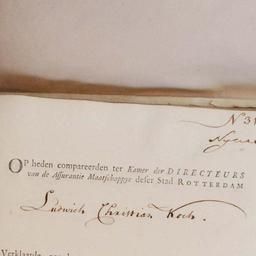 N 31
OP heden compareerden ter Kamer der DIRECTEURS
van de Assurantie Maatschappye deser Stad ROTTERDAM
Ludwich Christian Koch.
Verklaarde